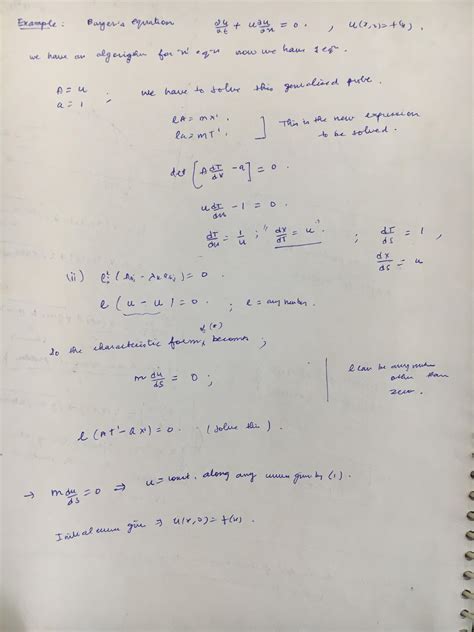 Example: Burger's equation ∂u/∂t + u ∂u/∂x = 0. , u(x,0) = f(x).
we have an algorithm for 'n' eqn now we have 1 eqn.
A = u
a = 1 ; we have to solve this generalised probe.
lA = mx'.
la = mT'. ] This is the new expression to be solved.
det [A dT/dX - a] = 0.
u dT/dx - 1 = 0.
dT/dx = 1/u ; "dx/dT = u". ; dT/ds = 1,
dx/ds = u
(ii) = 0.
l (u - u) = 0. ; l = any number.
So the characteristic form becomes ;
m du/ds = 0 ; l can be any number other than zero.
l (AT' - ax') = 0. (solve this).
→ m du/ds = 0 ⇒ u = const. along any curve given by (1).
Initial curve give ⇒ u(x,0) = f(x).